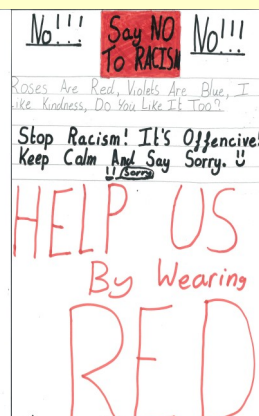 No!!! Say NO No!!!
To RACISM
Roses Are Red, Violets Are Blue, I
Like Kindness, Do You Like It Too?
Stop Racism! It's Offencive!
Keep Calm And Say Sorry.
Sorry
HELP US
By Wearing
RED